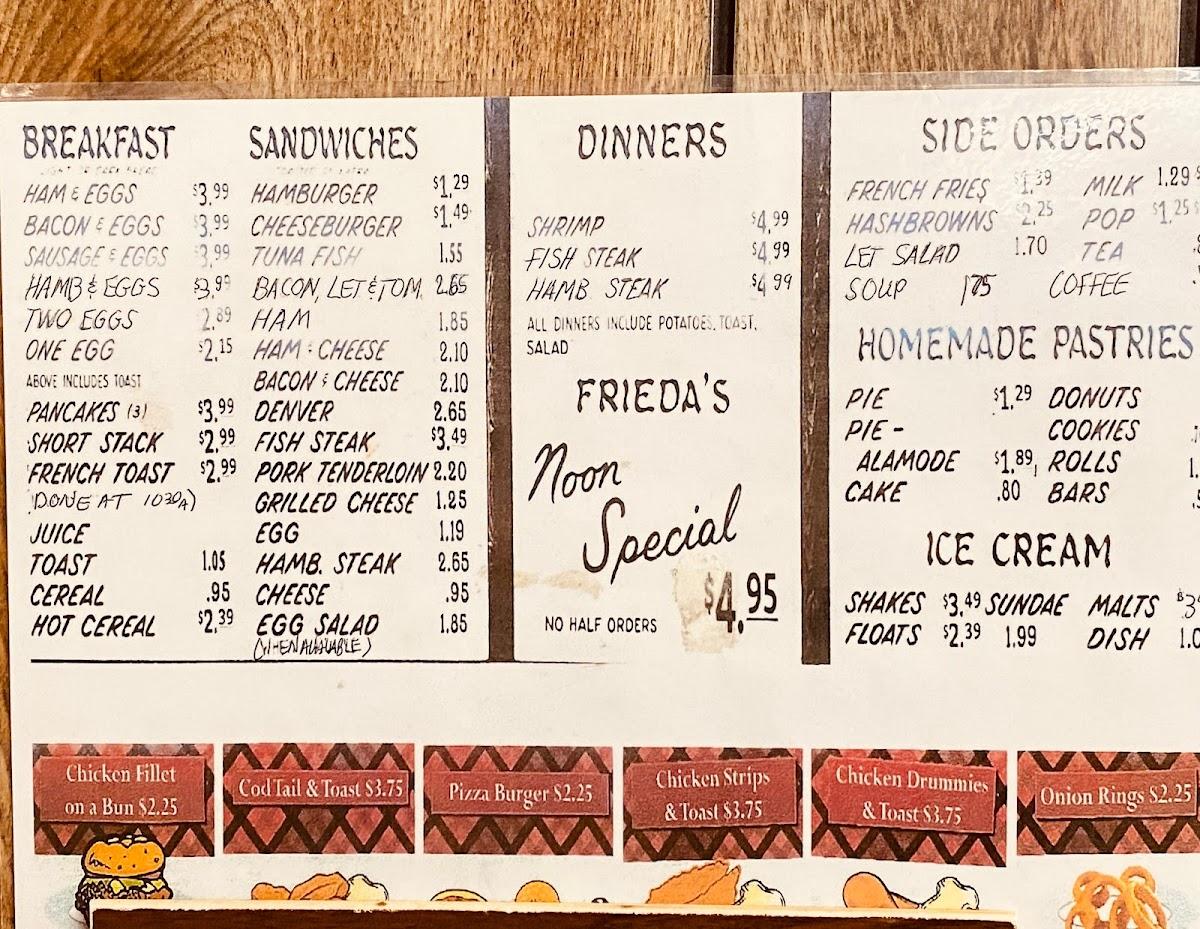 BREAKFAST
HAM & EGGS $3.99
BACON & EGGS $3.99
SAUSAGE & EGGS $3.99
HAMB & EGGS $3.99
TWO EGGS 2.89
ONE EGG $2.15
ABOVE INCLUDES TOAST
PANCAKES (3) $3.99
SHORT STACK $2.99
FRENCH TOAST $2.99
(DONE AT 1030A)
JUICE
TOAST 1.05
CEREAL .95
HOT CEREAL $2.39
SANDWICHES
HAMBURGER $1.29
CHEESEBURGER $1.49
TUNA FISH 1.55
BACON, LET & TOM. 2.65
HAM 1.85
HAM & CHEESE 2.10
BACON & CHEESE 2.10
DENVER 2.65
FISH STEAK $3.49
PORK TENDERLOIN 2.20
GRILLED CHEESE 1.25
EGG 1.19
HAMB. STEAK 2.65
CHEESE .95
EGG SALAD 1.85
(WHEN AVAILABLE)
DINNERS
SHRIMP $4.99
FISH STEAK $4.99
HAMB. STEAK $4.99
ALL DINNERS INCLUDE POTATOES, TOAST,
SALAD
FRIEDA'S
Noon
Special
$4.95
NO HALF ORDERS
SIDE ORDERS
FRENCH FRIES $1.39 MILK 1.29
HASHBROWNS $2.25 POP $1.25
LET SALAD 1.70 TEA
SOUP 1.75 COFFEE
HOMEMADE PASTRIES
PIE $1.29 DONUTS
PIE - COOKIES
ALAMODE $1.89 ROLLS
CAKE .80 BARS
ICE CREAM
SHAKES $3.49 SUNDAE MALTS
FLOATS $2.39 1.99 DISH
Chicken Fillet
on a Bun $2.25
Cod Tail & Toast $3.75
Pizza Burger $2.25
Chicken Strips
& Toast $3.75
Chicken Drummies
& Toast $3.75
Onion Rings $2.25